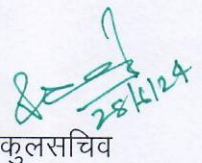 28/6/24
कुलसचिव